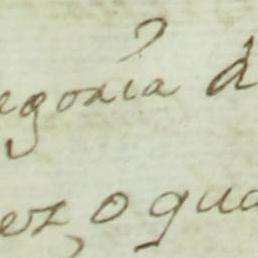 egoxia d
ez, o qua